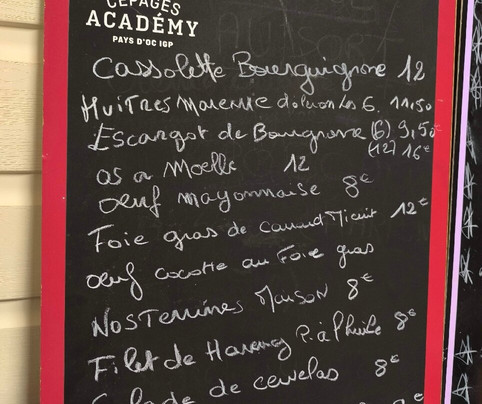 CÉPAGES
ACADÉMY
PAYS D'OC IGP
Cassolette Bourguignonne 12
HUITRES Marennes d'oleron les 6. 11,50
Escargot de Bourgogne (6) 9,50€
(12) 16€
os a Moelle 12
oeuf mayonnaise 8€
Foie gras de canard Micuit 12€
oeuf cocotte au Foie gras
NOS Terrines Maison 8€
Filet de Hareng P. à l'huile 8€
Salade de cervelas 8€